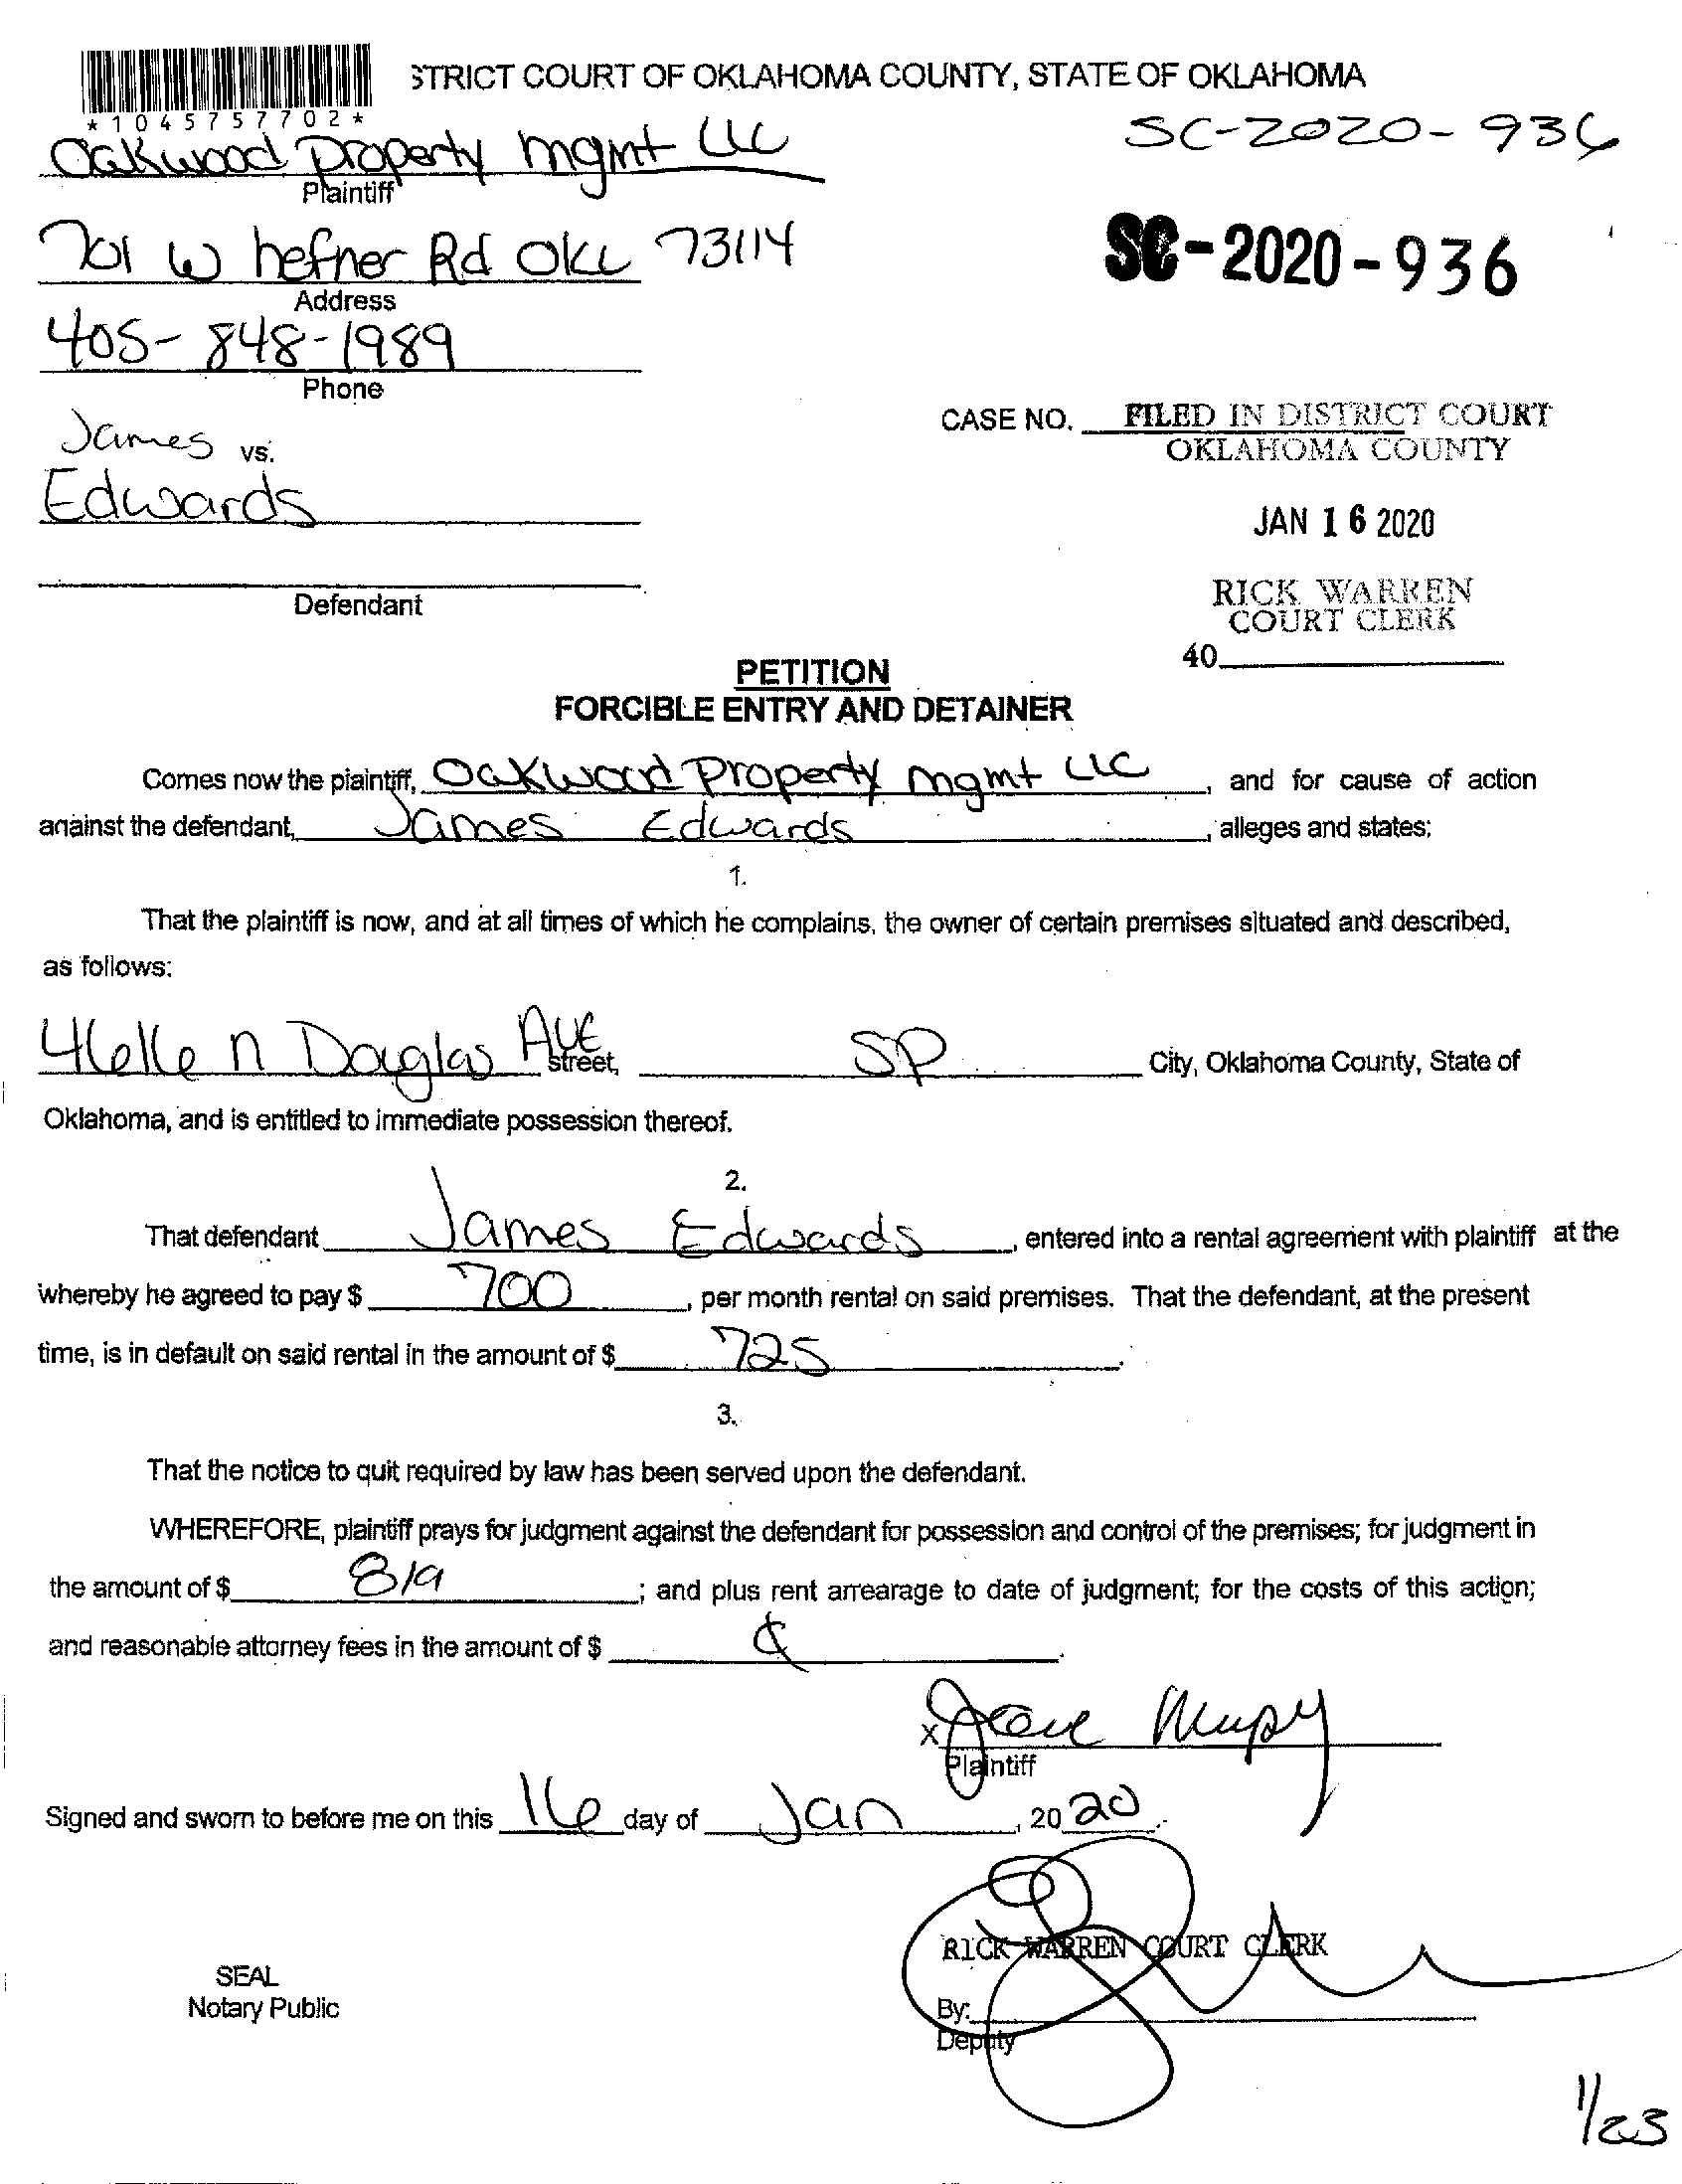 STRICT COURT OF OKLAHOMA COUNTY, STATE OF OKLAHOMA
*1045757702*
SC-2020-936
Oakwood Property mgmt LLC
Plaintiff
701 W hefner Rd OKC 73114
Address
SC-2020-936
405-848-1989
Phone
CASE NO. FILED IN DISTRICT COURT
OKLAHOMA COUNTY
James vs.
Edwards
JAN 16 2020
Defendant
RICK WARREN
COURT CLERK
40
PETITION
FORCIBLE ENTRY AND DETAINER
Comes now the plaintiff, Oakwood Property mgmt LLC, and for cause of action
against the defendant, James Edwards, alleges and states:
1.
That the plaintiff is now, and at all times of which he complains, the owner of certain premises situated and described,
as follows:
4616 N Douglas Ave street, SP City, Oklahoma County, State of
Oklahoma, and is entitled to immediate possession thereof.
2.
That defendant James Edwards, entered into a rental agreement with plaintiff at the
whereby he agreed to pay $ 700, per month rental on said premises. That the defendant, at the present
time, is in default on said rental in the amount of $ 725.
3.
That the notice to quit required by law has been served upon the defendant.
WHEREFORE, plaintiff prays for judgment against the defendant for possession and control of the premises; for judgment in
the amount of $ 819; and plus rent arrearage to date of judgment; for the costs of this action;
and reasonable attorney fees in the amount of $
x
Plaintiff
Signed and sworn to before me on this 16 day of Jan, 2020.
RICK WARREN COURT CLERK
SEAL
Notary Public
By:
Deputy
1/23